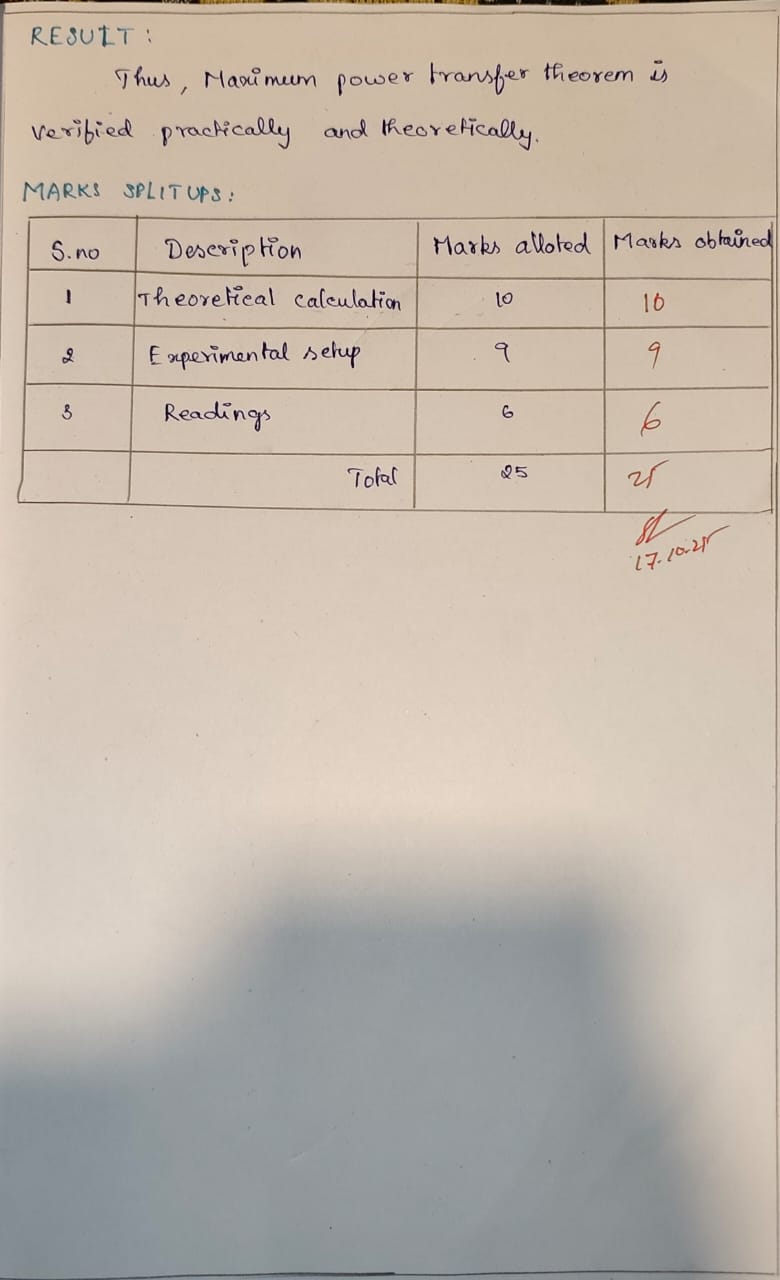 RESULT :
Thus, Maximum power transfer theorem is
verified practically and theoretically.
MARKS SPLITUPS :
S.no Description Marks alloted Marks obtained
1 Theoretical calculation 10 10
2 Experimental setup 9 9
3 Readings 6 6
Total 25 25
17.10.25